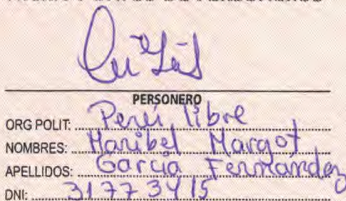 PERSONERO
ORG POLIT: Perú libre
NOMBRES: Maribel Margot
APELLIDOS: Garcia Fernandez
DNI: 31773415